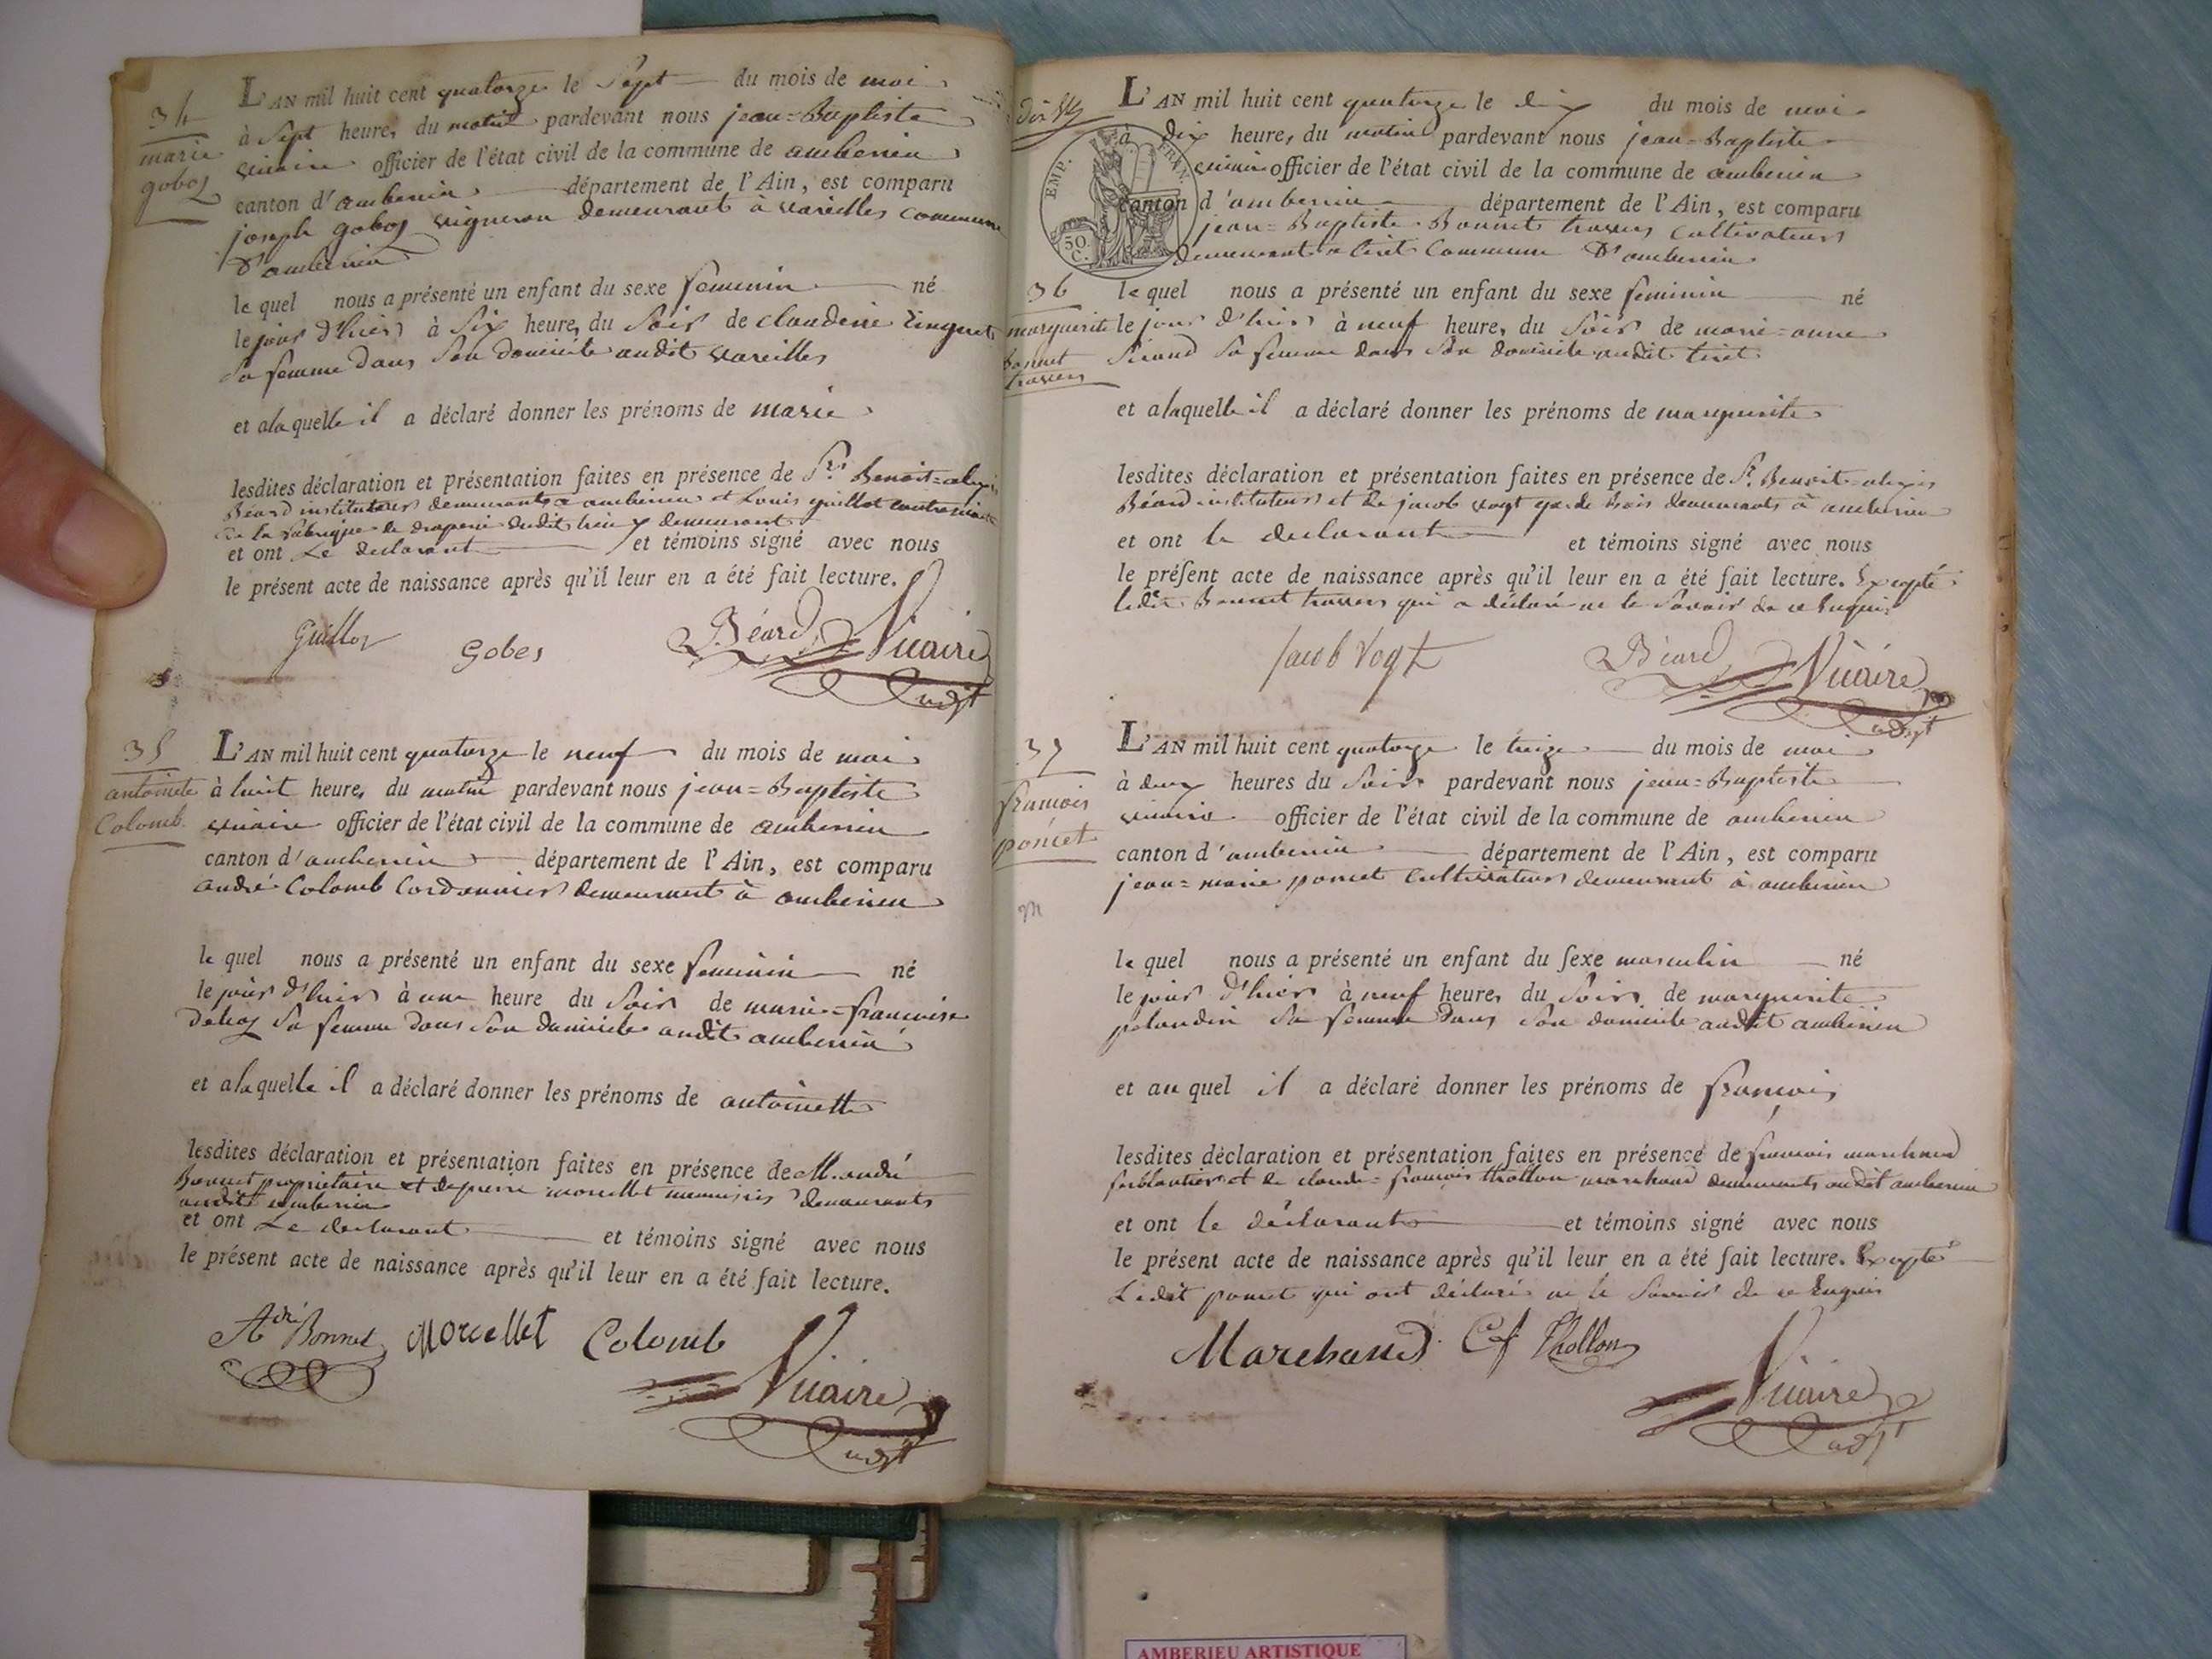 34
marie
goboz
L'AN mil huit cent quatorze le Sept du mois de mai
à Sept heures du matin pardevant nous jean=Baptiste
vicaire officier de l'état civil de la commune de amberieu
canton d'amberieu département de l'Ain, est comparu
joseph goboz vigneron demeurant à vareilles commune
d'amberieu
le quel nous a présenté un enfant du sexe feminin né
le jour d'hier à Six heures du Soir de claudine
Sa femme dans Son domicile audit vareilles
et a laquelle il a déclaré donner les prénoms de marie
lesdites déclaration et présentation faites en présence de Sr. Benoit=alexis
Béard instituteur demeurants a amberieu et Louis guillot contremaitre
de la fabrique de draperie dudit lieu y demeurant
et ont Le declarant et témoins signé avec nous
le présent acte de naissance après qu'il leur en a été fait lecture.
Guillot Gobes Béard Vicaire
adjt
35
antoinette
Colomb
L'AN mil huit cent quatorze le neuf du mois de mai
à huit heures du matin pardevant nous jean=Baptiste
vicaire officier de l'état civil de la commune de amberieu
canton d'amberieu département de l'Ain, est comparu
andré Colomb Cordonnier demeurant à amberieu
le quel nous a présenté un enfant du sexe feminin né
le jour d'hier à une heure du Soir de marie=francoise
Sa femme dans Son domicile audit amberieu
et a laquelle il a déclaré donner les prénoms de antoinette
lesdites déclaration et présentation faites en présence de M. andré
Bonnet propriétaire et de pierre morellet menuisier demeurants
audit amberieu
et ont Le declarant et témoins signé avec nous
le présent acte de naissance après qu'il leur en a été fait lecture.
Adré Bonnet Morellet Colomb Vicaire
adjt
L'AN mil huit cent quatorze le dix du mois de mai
à dix heures du matin pardevant nous jean=Baptiste
vicaire officier de l'état civil de la commune de amberieu
canton d'amberieu département de l'Ain, est comparu
jean=Baptiste Bonnet travers cultivateur
demeurant a tiret Commune d'amberieu
EMP. FRAN.
50. C.
36
marguerite
Bonnet
travers
le quel nous a présenté un enfant du sexe feminin né
le jour d'hier à neuf heures du Soir de marie=anne
Sirand Sa femme dans Son domicile audit tiret
et a laquelle il a déclaré donner les prénoms de marguerite
lesdites déclaration et présentation faites en présence de Sr. Benoit=alexis
Béard instituteur et de jacob vogt garde Bois demeurants à amberieu
et ont le declarant et témoins signé avec nous
le présent acte de naissance après qu'il leur en a été fait lecture. Excepté
ledit Bonnet travers qui a déclaré ne le Savoir de ce Enquis
Jacob Vogt Béard Vicaire
adjt
37
francois
poncet
L'AN mil huit cent quatorze le treize du mois de mai
à deux heures du Soir pardevant nous jean=Baptiste
vicaire officier de l'état civil de la commune de amberieu
canton d'amberieu département de l'Ain, est comparu
jean=marie poncet cultivateur demeurant à amberieu
m
le quel nous a présenté un enfant du sexe masculin né
le jour d'hier à neuf heures du Soir de marguerite
pelandin Sa femme dans Son domicile audit amberieu
et au quel il a déclaré donner les prénoms de francois
lesdites déclaration et présentation faites en présence de francois marchand
ferblantier et de claude=francois thollon marchand demeurants audit amberieu
et ont le declarant et témoins signé avec nous
le présent acte de naissance après qu'il leur en a été fait lecture. Excepté
Ledit poncet qui ont déclaré ne le Savoir de ce Enquis
Marchand Cf Thollon
Vicaire
adjt
AMBERIEU ARTISTIQUE